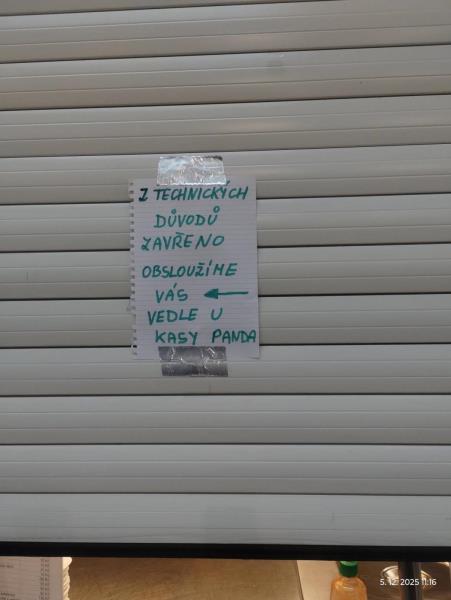 Z TECHNICKÝCH
DŮVODŮ
ZAVŘENO
OBSLOUŽÍME
VÁS ←
VEDLE U
KASY PANDA
5. 12. 2025 11:16